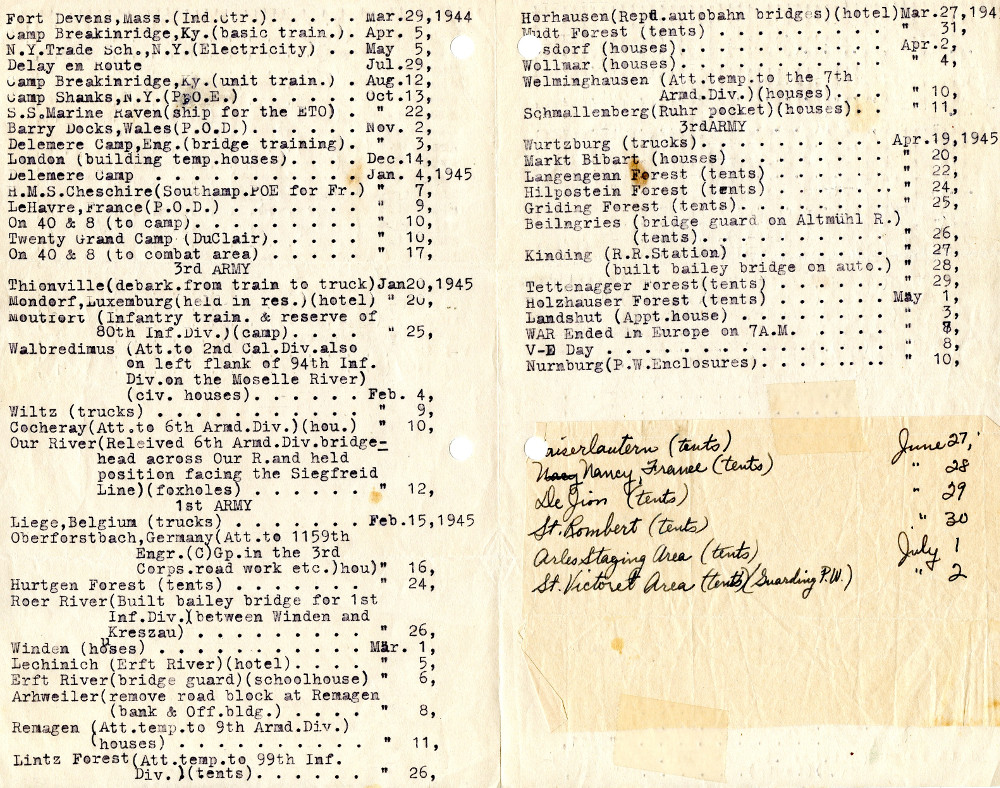 Fort Devens,Mass.(Ind.Ctr.). . . . . Mar.29,1944
Camp Breakinridge,Ky.(basic train.). Apr. 5,
N.Y.Trade Sch.,N.Y.(Electricity) . . May 5,
Delay en Route Jul.29,
Camp Breakinridge,Ky.(unit train.) . Aug.12,
Camp Shanks,N.Y.(P.O.E.) . . . . . . Oct.13,
S.S.Marine Raven(ship for the ETO) . " 22,
Barry Docks,Wales(P.O.D.). . . . . . Nov. 2,
Delemere Camp,Eng.(bridge training). " 3,
London (building temp.houses). . . . Dec.14,
Delemere Camp . . . . . . . . . . . Jan. 4,1945
H.M.S.Cheschire(Southamp.POE for Fr.) " 7,
LeHavre,France(P.O.D.) . . . . . . . " 9,
On 40 & 8 (to camp). . . . . . . . . " 10,
Twenty Grand Camp (DuClair). . . . . " 10,
On 40 & 8 (to combat area) . . . . . " 17,
3rd ARMY
Thionville(debark.from train to truck)Jan20,1945
Mondorf,Luxemburg(held in res.)(hotel) " 20,
Moutfort (Infantry train. & reserve of
80th Inf.Div.)(camp). . . . " 25,
Walbredimus (Att.to 2nd Cal.Div.also
on left flank of 94th Inf.
Div.on the Moselle River)
(civ. houses). . . . . . Feb. 4,
Wiltz (trucks) . . . . . . . . . . . " 9,
Cocheray(Att.to 6th Armd.Div.)(hou.) " 10,
Our River(Releived 6th Armd.Div.bridge-
head across Our R.and held
position facing the Siegfreid
Line)(foxholes) . . . . . . " 12,
1st ARMY
Liege,Belgium (trucks) . . . . . . . Feb.15,1945
Oberforstbach,Germany(Att.to 1159th
Engr.(C)Gp.in the 3rd
Corps.road work etc.)hou)" 16,
Hurtgen Forest (tents) . . . . . . . " 24,
Roer River(Built bailey bridge for 1st
Inf.Div.)(between Winden and
Kreszau) . . . . . . . . . . " 26,
Winden (houses) . . . . . . . . . . . Mar. 1,
Lechinich (Erft River)(hotel). . . . " 5,
Erft River(bridge guard)(schoolhouse) " 6,
Arhweiler(remove road block at Remagen
(bank & Off.bldg.) . . . . " 8,
Remagen (Att.temp.to 9th Armd.Div.)
(houses) . . . . . . . . . . " 11,
Lintz Forest(Att.temp.to 99th Inf.
Div.)(tents). . . . . . " 26,
Horhausen(Repd.autobahn bridges)(hotel)Mar.27,194
Mudt Forest (tents) . . . . . . . . . " 31,
sdorf (houses). . . . . . . . . . Apr.2,
Wollmar (houses). . . . . . . . . . . " 4,
Welminghausen (Att.temp.to the 7th
Armd.Div.)(houses). . . " 10,
Schmallenberg(Ruhr pocket)(houses). . " 11,
3rdARMY
Wurtzburg (trucks). . . . . . . . . . Apr.19,1945
Markt Bibart (houses) . . . . . . . . " 20,
Langengenn Forest (tents) . . . . . . " 22,
Hilpostein Forest (tents) . . . . . . " 24,
Griding Forest (tents). . . . . . . . " 25,
Beilngries (bridge guard on Altmühl R.)
(tents). . . . . . . . . . " 26,
Kinding (R.R.Station) . . . . . . . . " 27,
(built bailey bridge on auto.) " 28,
Tettenagger Forest(tents) . . . . . . " 29,
Holzhauser Forest (tents) . . . . . . May 1,
Landshut (Appt.house) . . . . . . . . " 3,
WAR Ended in Europe on 7A.M. . . . . " 8,
V-E Day . . . . . . . . . . . . . . . " 8,
Nurnburg(P.W.Enclosures). . . . . . . " 10,
aiserlautern (tents) June 27,
Nancy, France (tents) " 28
De Jion (tents) " 29
St. Rombert (tents) " 30
Arles Staging Area (tents) July 1
St. Victoret Area (tents)(Guarding P.W.) " 2